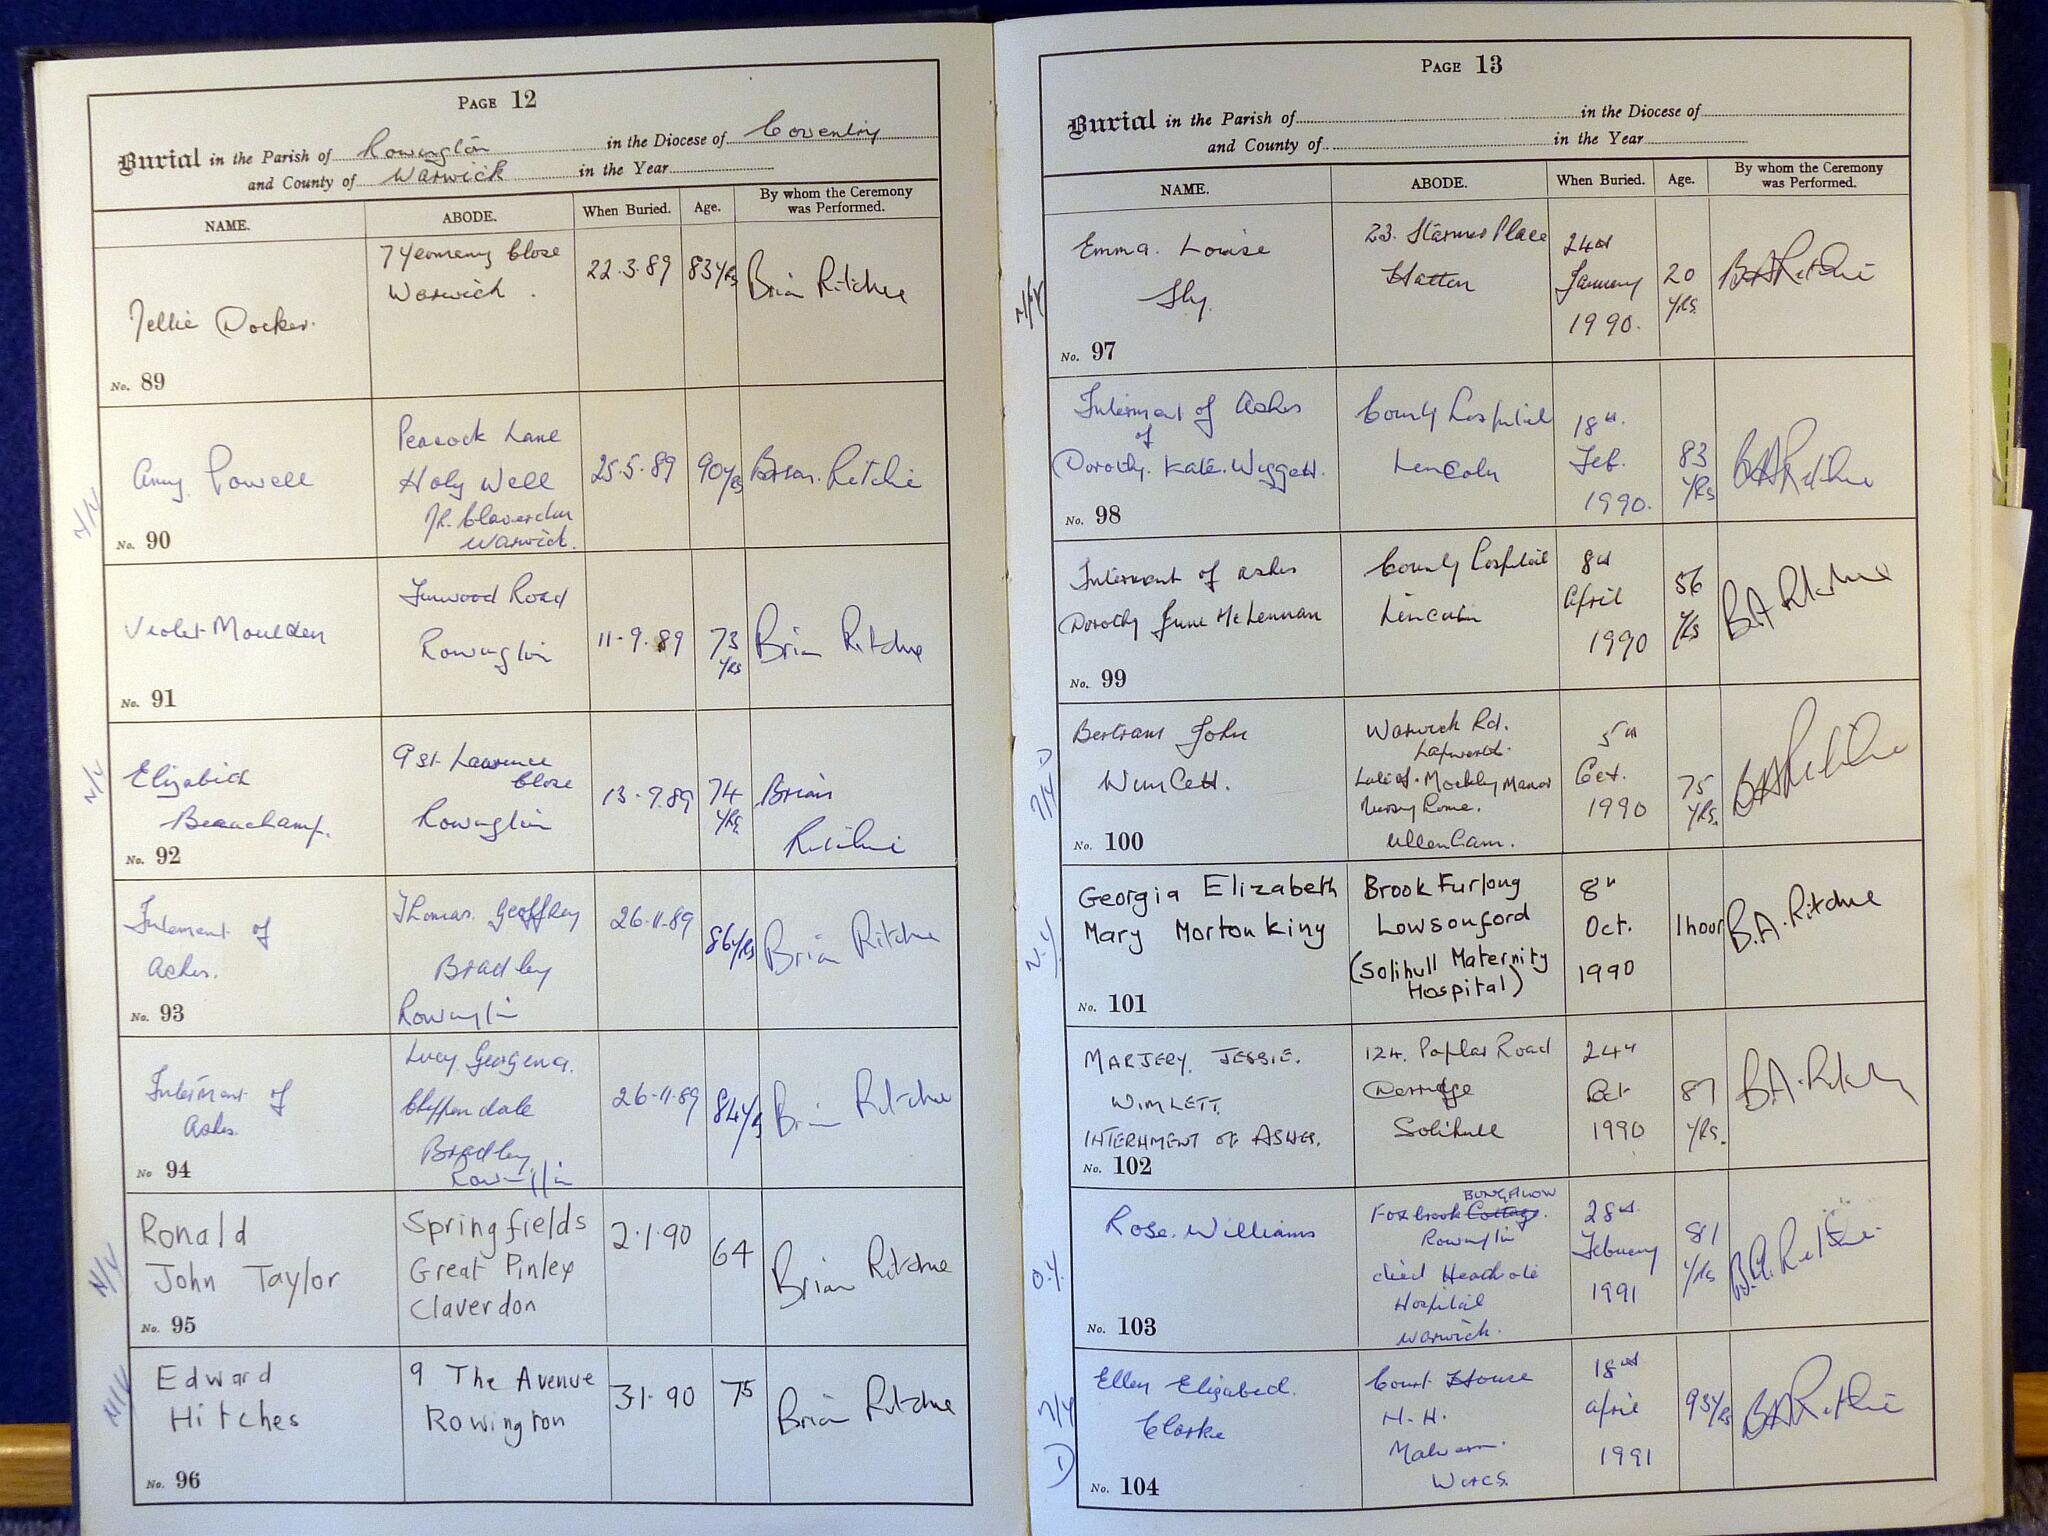 PAGE 12
Burial in the Parish of Rowington in the Diocese of Coventry
and County of Warwick in the Year
NAME. ABODE. When Buried. Age. By whom the Ceremony was Performed.
7 Yeomanry Close
Warwick.
22.3.89 83 yrs Brian Ritchie
Nellie Docker.
No. 89
N/Y
Amy Powell
Peacock Lane
Holy Well
Nr. Claverdon
Warwick.
25.5.89 90 yrs Brian Ritchie
No. 90
Violet Moulden
Finwood Road
Rowington
11-9.89 73 yrs Brian Ritchie
No. 91
N/Y
Elizabeth
Beauchamp.
9 St. Lawrence
Close
Rowington
13-9.89 74 yrs Brian
Ritchie
No. 92
Interment of
Ashes.
Thomas Geoffrey
Bradley
Rowington
26.11.89 86 yrs Brian Ritchie
No. 93
Interment of
Ashes.
Lucy Georgena
Chippendale
Bradley
Rowington
26.11.89 84 yrs Brian Ritchie
No 94
N/Y
Ronald
John Taylor
Springfields
Great Pinley
Claverdon
2.1.90 64 Brian Ritchie
No. 95
N/Y
Edward
Hitches
9 The Avenue
Rowington
3.1.90 75 Brian Ritchie
No. 96
PAGE 13
Burial in the Parish of in the Diocese of
and County of in the Year
NAME. ABODE. When Buried. Age. By whom the Ceremony was Performed.
N/Y
Emma Louise
Sly.
23. Starmer Place
Hatton
24th
January
1990.
20
yrs.
BARitchie
No. 97
Interment of Ashes
of
Dorothy. Kate. Wyggett.
County Hospital
Lincoln
18th
Feb.
1990.
83
yrs
BARitchie
No. 98
Interment of ashes
Dorothy June McLennan
County Hospital
Lincoln
8th
April
1990
56
yrs
B.A Ritchie
No. 99
N/Y
Bertram John
Wimlett.
Warwick Rd.
Lapworth.
Late of. Mockley Manor
Nursing Home.
Ullenhall.
5th
Oct.
1990
75
yrs.
BARitchie
No. 100
N.Y
Georgia Elizabeth
Mary Morton King
Brook Furlong
Lowsonford
(Solihull Maternity
Hospital)
8th
Oct.
1990
1 hour
B.A. Ritchie
No. 101
MARJERY. JESSIE.
WIMLETT.
INTERNMENT OF ASHES.
124. Poplar Road
Dorridge
Solihull
24th
Oct
1990
87
yrs.
B.A. Ritchie
No. 102
O.Y.
Rose. Williams
BUNGALOW
Foxbrook Cottage.
Rowington
died Heathcote
Hospital
Warwick.
28th
February
1991
81
yrs
B.A. Ritchie
No. 103
N/Y
Ellen Elizabeth.
Clarke
Court House
N.H.
Malvern.
Worcs.
18th
April
1991
93 yrs
BARitchie
No. 104